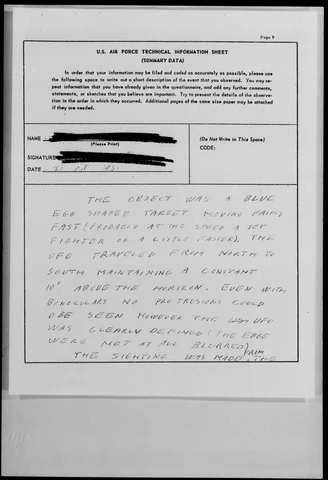 Page 9
U.S. AIR FORCE TECHNICAL INFORMATION SHEET
(SUMMARY DATA)
In order that your information may be filed and coded as accurately as possible, please use
the following space to write out a short description of the event that you observed. You may re-
peat information that you have already given in the questionnaire, and add any further comments,
statements, or sketches that you believe are important. Try to present the details of the observa-
tion in the order in which they occurred. Additional pages of the same size paper may be attached
if they are needed.
NAME
(Please Print)
SIGNATURE
DATE
(Do Not Write in This Space)
CODE:
THE OBJECT WAS A BLUE
EGG SHAPED TARGET MOVING FAIRLY
FAST (PROBABLY AT THE SPEED A JET
FIGHTER OR A LITTLE FASTER). THE
UFO TRAVELED FROM NORTH TO
SOUTH MAINTAINING A CONSTANT
10° ABOVE THE HORIZON. EVEN WITH
BINOCULARS NO PROTRUSIONS COULD
BE SEEN HOWEVER THE UFO
WAS CLEARLY DEFINED (THE EDGE
WERE NOT AT ALL BLURRED)
THE SIGHTING WAS MADE FROM THE